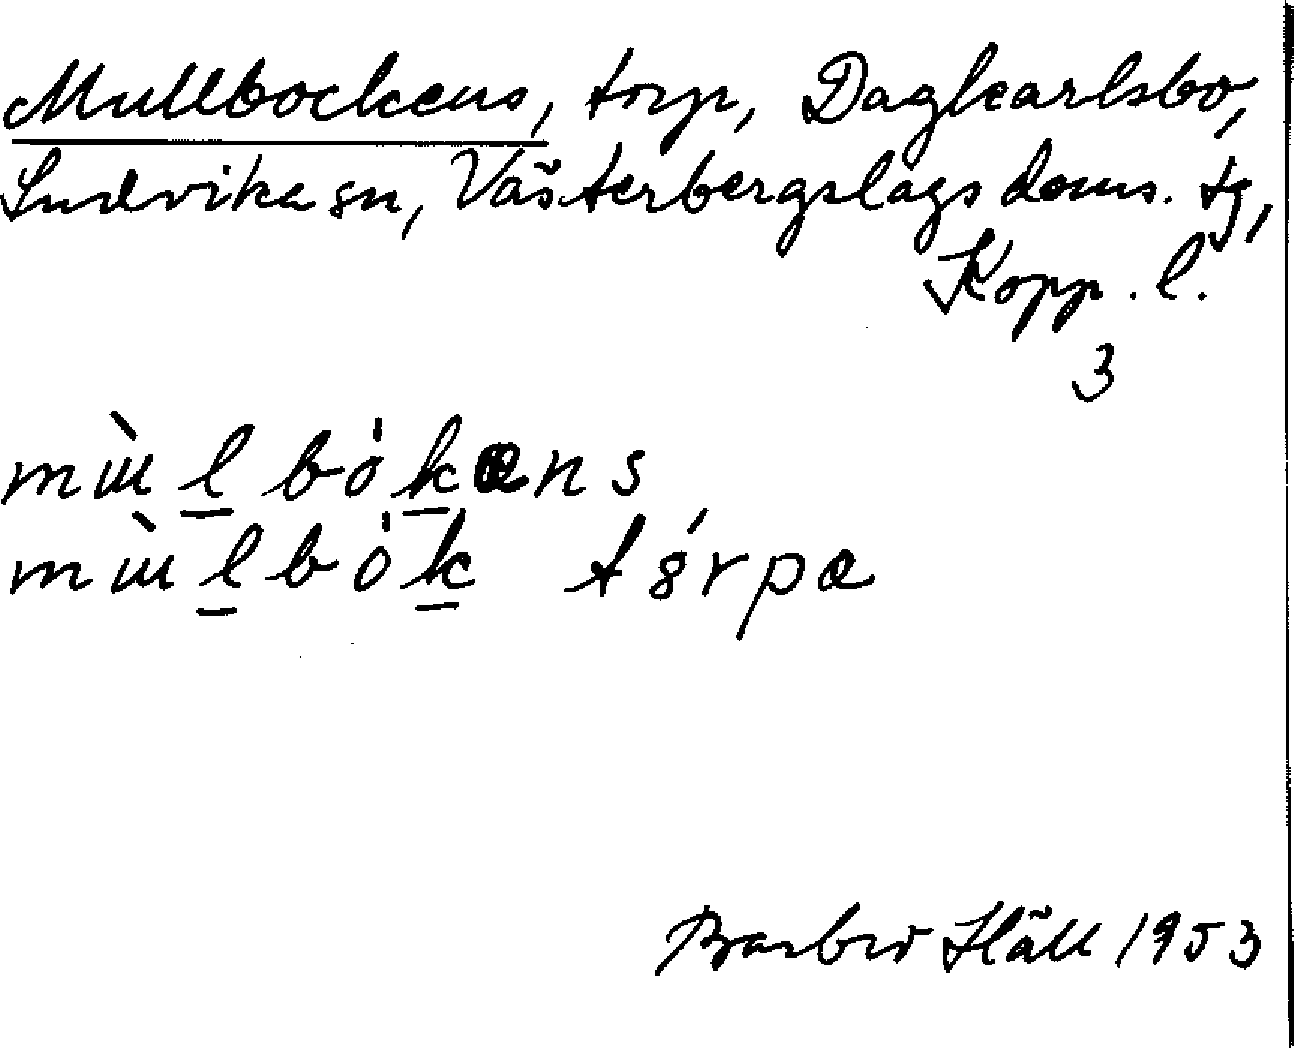 Mullbockens, torp, Dagkarlsbo,
Ludvika sn, Västerbergslags doms. tg,
Kopp. l.
3
mɯ̀l̲ bók̲ens
mɯ̀l̲ bók̲ tórpe
Barbro Häll 1953